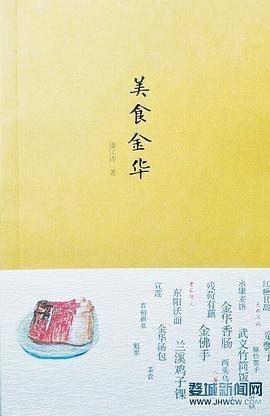 美食金华
潘江涛 著
永康麦饼
武义竹筒饭
金华香肠
两头乌
残荷有藕
金佛手
东阳沃面
兰溪鸡子馃
宣莲
金华汤包
茶食
魁栗
婺城新闻网
WWW.JHWCW.COM